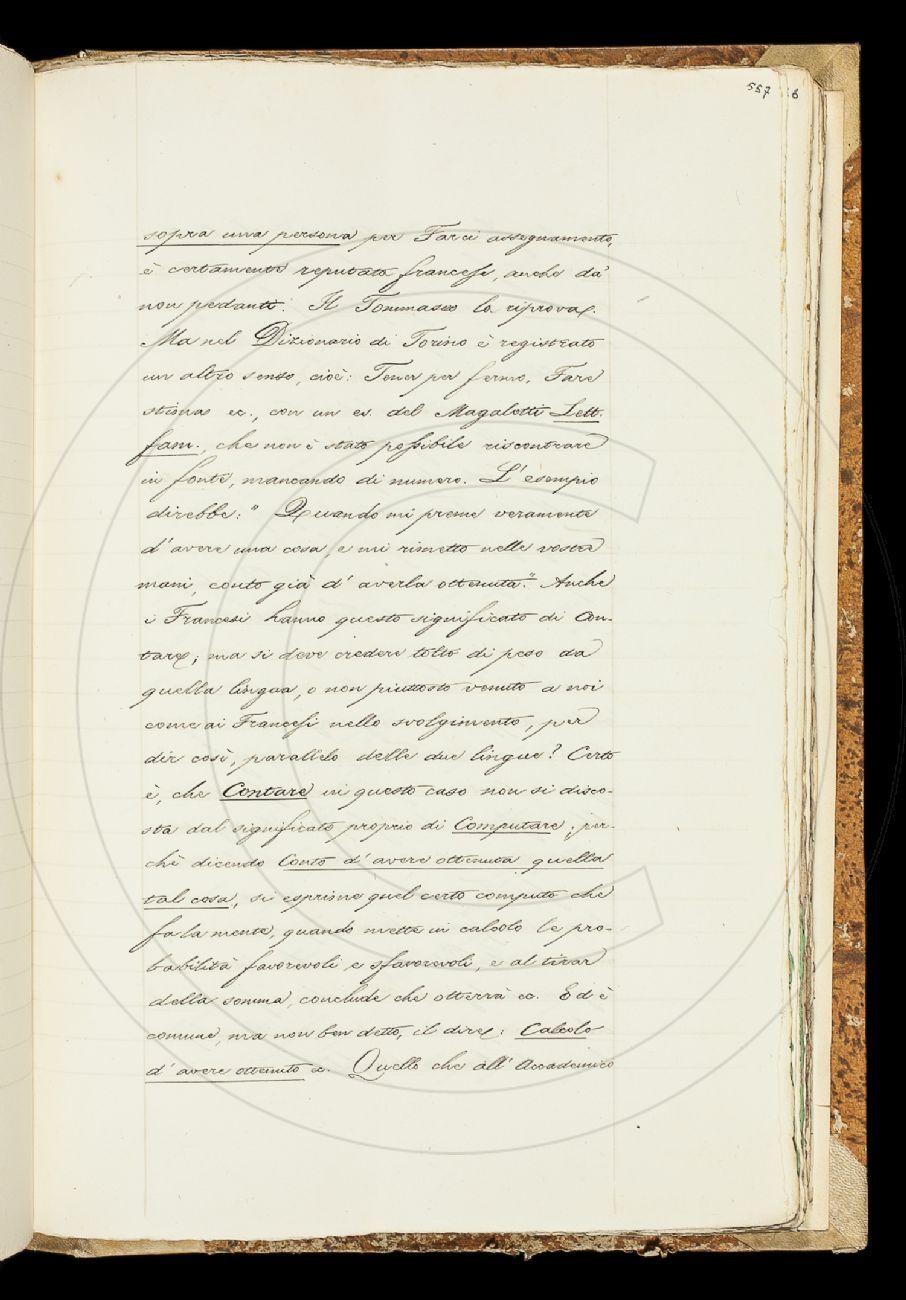 557 6
sopra una persona per Farci assegnamento,
è certamente reputato francese, anche da'
non pedanti. Il Tommaseo lo riprova.
Ma nel Dizionario di Torino è registrato
un altro senso, cioè: Tener per fermo, Fare
stima ec., con un es. del Magalotti Lett.
fam., che non è stato possibile riscontrare
in fonte, mancando di numero. L'esempio
direbbe: "Quando mi preme veramente
d'avere una cosa, e mi rimetto nelle vostre
mani, conto già d'averla ottenuta." Anche
i Francesi hanno questo significato di Con-
tare; ma si deve credere tolto di peso da
quella lingua, o non piuttosto venuto a noi
come ai Francesi nello svolgimento, per
dir così, parallelo delle due lingue? Certo
è, che Contare in questo caso non si disco-
sta dal significato proprio di Computare; per-
chè dicendo Conto d'avere ottenuta quella
tal cosa, si esprime quel certo computo che
fa la mente, quando mette in calcolo le pro-
babilità favorevoli e sfavorevoli, e al tirar
della somma, conclude che otterrà ec. Ed è
comune, ma non ben detto, il dire: Calcolo
d'avere ottenuto ec. Quello che all'Accademico